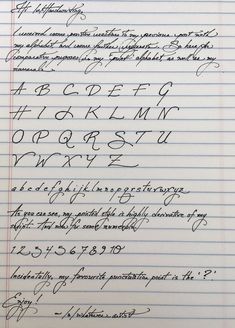 Hi /r/Handwriting,
I received some positive reactions to my previous post with
my alphabet and some further requests. So here for
comparative purposes is my printed alphabet as well as my
numerals.
A B C D E F G
H I J K L M N
O P Q R S T U
V W X Y Z
a b c d e f g h i j k l m n o p q r s t u v w x y z
As you can see, my printed style is highly derivative of my
script. And now for some numerals,
1 2 3 4 5 6 7 8 9 10
Incidentally, my favourite punctuation point is the '?'.
Enjoy!
artist